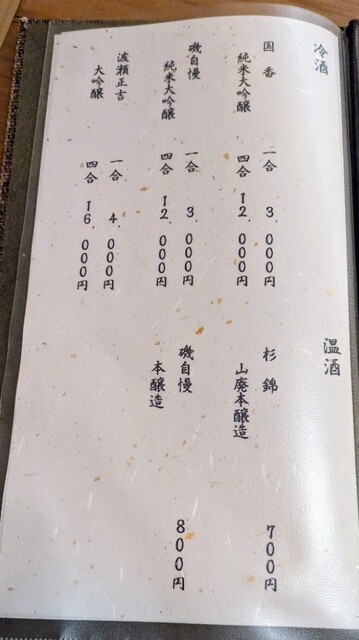 冷酒
国香
純米大吟醸
一合 3,000円
四合 12,000円
磯自慢
純米大吟醸
一合 3,000円
四合 12,000円
波瀬正吉
大吟醸
一合 4,000円
四合 16,000円
温酒
杉錦
山廃本醸造
700円
磯自慢
本醸造
800円